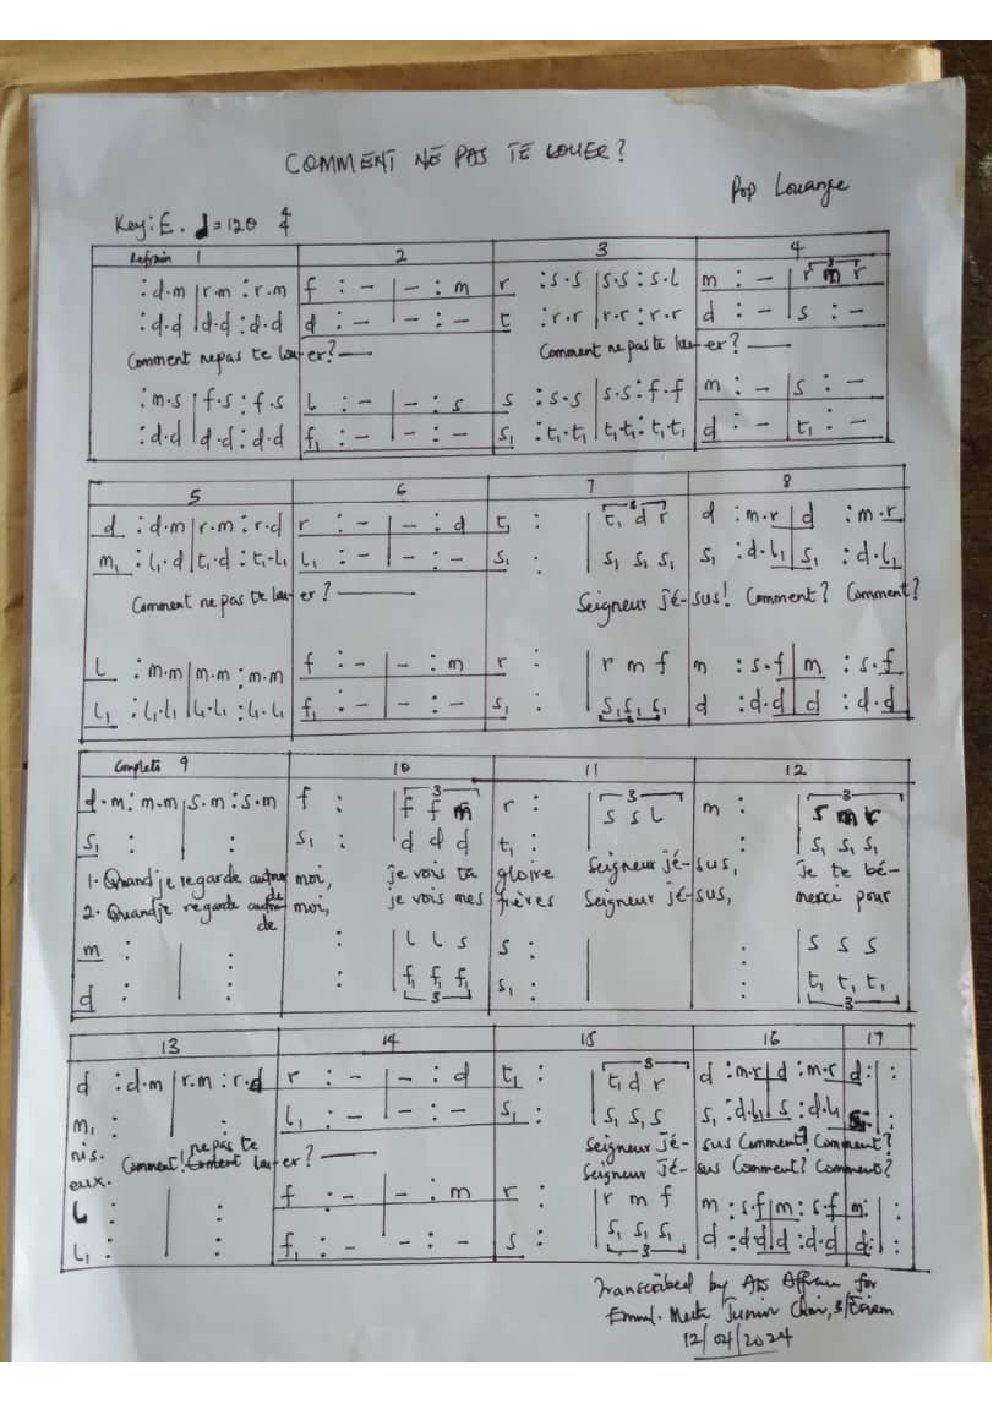 COMMENT NE PAS TE LOUER?
Pop Louange
Key: E. ♩=120 4/4
Refrain 1 2 3 4
:d.m|r.m:r.m f:-|-:m r:s.s|s.s:s.l m:-|r m r
:d.d|d.d:d.d d:-|-:- t:r.r|r.r:r.r d:-|s:-
Comment ne pas te lou-er?— Comment ne pas te lou-er?—
:m.s|f.s:f.s l:-|-:s s:s.s|s.s:f.f m:-|s:-
:d.d|d.d:d.d f₁:-|-:- s₁:t₁.t₁|t₁.t₁:t₁.t₁ d:-|t₁:-
5 6 7 8
d:d.m|r.m:r.d r:-|-:d t₁:|t₁ d r d:m.r|d:m.r
m₁:l₁.d|t₁.d:t₁.l₁ l₁:-|-:- s₁:|s₁ s₁ s₁ s₁:d.l₁|s₁:d.l₁
Comment ne pas te lou-er?— Seigneur Jé-sus! Comment? Comment?
l:m.m|m.m:m.m f:-|-:m r:|r m f m:s.f|m:s.f
l₁:l₁.l₁|l₁.l₁:l₁.l₁ f₁:-|-:- s₁:|s₁ f₁ f₁ d:d.d|d:d.d
Complets 9 10 11 12
d.m:m.m|s.m:s.m f:|3 f f m r:|3 s s l m:|3 s m r
s₁:|: s₁:|d d d t₁:| :|s₁ s₁ s₁
1. Quand je regarde autour moi, je vois ta gloire Seigneur Jé-sus, Je te bé-
2. Quand je regarde autour de moi, je vois mes frères Seigneur Jé-sus, merci pour
de
m:|: :|l l s s:| :|s s s
d:|: :|f₁ f₁ f₁ 3 s₁:| :|t₁ t₁ t₁ 3
13 14 15 16 17
d:d.m|r.m:r.d r:-|-:d t₁:|3 t₁ d r d:m.r|d:m.r d:|:
m₁:|: l₁:-|-:- s₁:|s₁ s₁ s s₁:d.l₁|s:d.l₁ s₁:|:
nis. Comment! ne pas te lou-er?— Seigneur Jé-sus Comment? Comment?
eux. Seigneur Jé-sus Comment? Comment?
l:|: f:-|-:m r:|r m f m:s.f|m:s.f m:|:
l₁:|: f₁:-|-:- s:|s₁ s₁ s₁ 3 d:d.d|d:d.d d:|:
Transcribed by for
Emml. Junior Choir,
12/04/2024